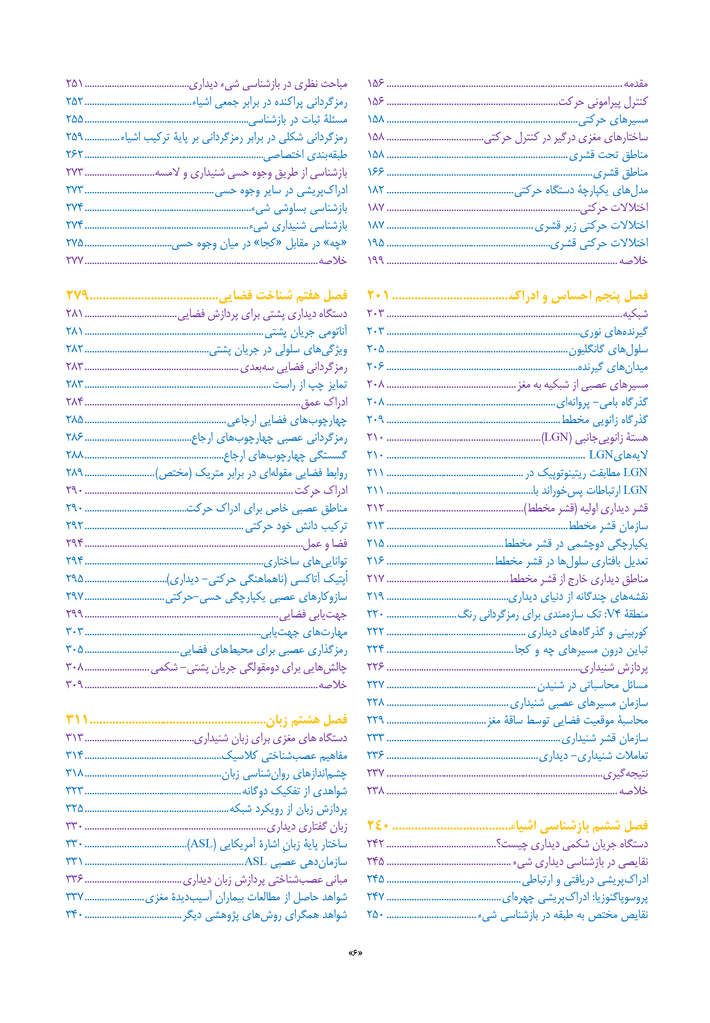 مقدمه ..... ۱۵۶
کنترل پیرامونی حرکت ..... ۱۵۶
مسیرهای حرکتی ..... ۱۵۸
ساختارهای مغزی درگیر در کنترل حرکتی ..... ۱۵۸
مناطق تحت قشری ..... ۱۵۸
مناطق قشری ..... ۱۶۶
مدل‌های یکپارچهٔ دستگاه حرکتی ..... ۱۸۲
اختلالات حرکتی ..... ۱۸۷
اختلالات حرکتی زیر قشری ..... ۱۸۷
اختلالات حرکتی قشری ..... ۱۹۵
خلاصه ..... ۱۹۹
فصل پنجم احساس و ادراک ..... ۲۰۱
شبکیه ..... ۲۰۳
گیرنده‌های نوری ..... ۲۰۳
سلول‌های گانگلیون ..... ۲۰۵
میدان‌های گیرنده ..... ۲۰۶
مسیرهای عصبی از شبکیه به مغز ..... ۲۰۸
گذرگاه بامی- پروانه‌ای ..... ۲۰۸
گذرگاه زانویی مخطط ..... ۲۰۹
هستهٔ زانویی‌جانبی (LGN) ..... ۲۱۰
لایه‌های LGN ..... ۲۱۰
LGN مطابقت ریتینوتوپیک در ..... ۲۱۱
LGN ارتباطات پس‌خوراند با ..... ۲۱۱
قشر دیداری اولیه (قشر مخطط) ..... ۲۱۲
سازمان قشر مخطط ..... ۲۱۳
یکپارچگی دوچشمی در قشر مخطط ..... ۲۱۵
تعدیل بافتاری سلول‌ها در قشر مخطط ..... ۲۱۶
مناطق دیداری خارج از قشر مخطط ..... ۲۱۷
نقشه‌های چندگانه از دنیای دیداری ..... ۲۱۹
منطقهٔ V۴: تک سازه‌مندی برای رمزگردانی رنگ ..... ۲۲۰
کوربینی و گذرگاه‌های دیداری ..... ۲۲۲
تباین درون مسیرهای چه و کجا ..... ۲۲۴
پردازش شنیداری ..... ۲۲۶
مسائل محاسباتی در شنیدن ..... ۲۲۷
سازمان مسیرهای عصبی شنیداری ..... ۲۲۸
محاسبهٔ موقعیت فضایی توسط ساقهٔ مغز ..... ۲۲۹
سازمان قشر شنیداری ..... ۲۳۳
تعاملات شنیداری- دیداری ..... ۲۳۶
نتیجه‌گیری ..... ۲۳۷
خلاصه ..... ۲۳۸
فصل ششم بازشناسی اشیاء ..... ۲۴۰
دستگاه جریان شکمی دیداری چیست؟ ..... ۲۴۲
نقایصی در بازشناسی دیداری شیء ..... ۲۴۵
ادراک‌پریشی دریافتی و ارتباطی ..... ۲۴۵
پروسوپاگنوزیا: ادراک‌پریشی چهره‌ای ..... ۲۴۷
نقایص مختص به طبقه در بازشناسی شیء ..... ۲۵۰
مباحث نظری در بازشناسی شیء دیداری ..... ۲۵۱
رمزگردانی پراکنده در برابر جمعی اشیاء ..... ۲۵۲
مسئلهٔ ثبات در بازشناسی ..... ۲۵۵
رمزگردانی شکلی در برابر رمزگردانی بر پایهٔ ترکیب اشیاء ..... ۲۵۹
طبقه‌بندی اختصاصی ..... ۲۶۲
بازشناسی از طریق وجوه حسی شنیداری و لامسه ..... ۲۷۳
ادراک‌پریشی در سایر وجوه حسی ..... ۲۷۳
بازشناسی بساوشی شیء ..... ۲۷۴
بازشناسی شنیداری شیء ..... ۲۷۴
«چه» در مقابل «کجا» در میان وجوه حسی ..... ۲۷۵
خلاصه ..... ۲۷۷
فصل هفتم شناخت فضایی ..... ۲۷۹
دستگاه دیداری پشتی برای پردازش فضایی ..... ۲۸۱
آناتومی جریان پشتی ..... ۲۸۱
ویژگی‌های سلولی در جریان پشتی ..... ۲۸۲
رمزگردانی فضایی سه‌بعدی ..... ۲۸۳
تمایز چپ از راست ..... ۲۸۳
ادراک عمق ..... ۲۸۴
چهارچوب‌های فضایی ارجاعی ..... ۲۸۵
رمزگردانی عصبی چهارچوب‌های ارجاع ..... ۲۸۶
گسستگی چهارچوب‌های ارجاع ..... ۲۸۸
روابط فضایی مقوله‌ای در برابر متریک (مختص) ..... ۲۸۹
ادراک حرکت ..... ۲۹۰
مناطق عصبی خاص برای ادراک حرکت ..... ۲۹۰
ترکیب دانش خود حرکتی ..... ۲۹۲
فضا و عمل ..... ۲۹۴
توانایی‌های ساختاری ..... ۲۹۴
اُپتیک آتاکسی (ناهماهنگی حرکتی- دیداری) ..... ۲۹۵
سازوکارهای عصبی یکپارچگی حسی-حرکتی ..... ۲۹۷
جهت‌یابی فضایی ..... ۲۹۹
مهارت‌های جهت‌یابی ..... ۳۰۳
رمزگذاری عصبی برای محیط‌های فضایی ..... ۳۰۵
چالش‌هایی برای دومقولگی جریان پشتی- شکمی ..... ۳۰۸
خلاصه ..... ۳۰۹
فصل هشتم زبان ..... ۳۱۱
دستگاه های مغزی برای زبان شنیداری ..... ۳۱۳
مفاهیم عصب‌شناختی کلاسیک ..... ۳۱۴
چشم‌اندازهای روان‌شناسی زبان ..... ۳۱۸
شواهدی از تفکیک دوگانه ..... ۳۲۳
پردازش زبان از رویکرد شبکه ..... ۳۲۵
زبان گفتاری دیداری ..... ۳۳۰
ساختار پایهٔ زبانِ اشارهٔ آمریکایی (ASL) ..... ۳۳۰
سازمان‌دهی عصبی ASL ..... ۳۳۱
مبانی عصب‌شناختی پردازش زبان دیداری ..... ۳۳۶
شواهد حاصل از مطالعات بیماران آسیب‌دیدهٔ مغزی ..... ۳۳۷
شواهد همگرای روش‌های پژوهشی دیگر ..... ۳۴۰
«۶»